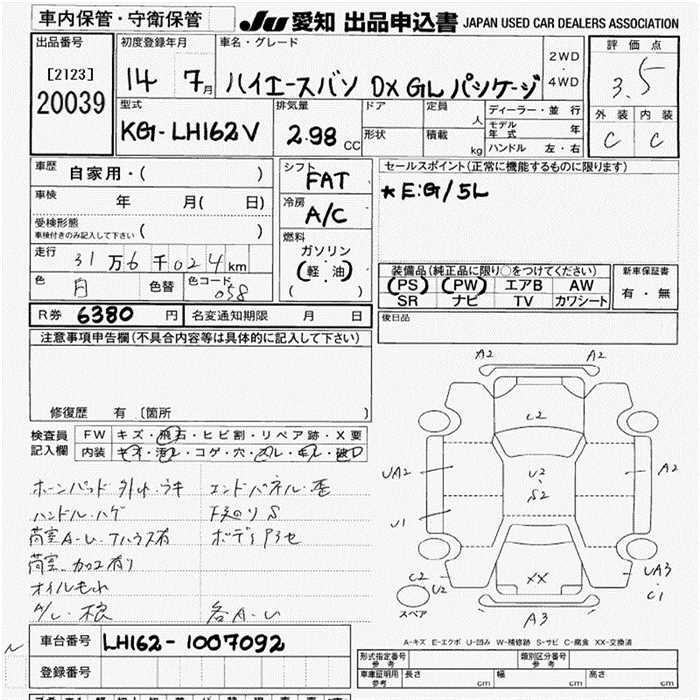 車内保管・守衛保管
JU 愛知 出品申込書 JAPAN USED CAR DEALERS ASSOCIATION
出品番号
[2123]
20039
初度登録年月
14 7月
車名・グレード
ハイエースバン DX GL パッケージ
2WD
・
4WD
評価点
3.5
外装 内装
C C
型式
KG-LH162V
排気量
2.98 CC
ドア
形状
定員 人
積載 kg
ディーラー・並行
モデル年式 年
ハンドル 左・右
車歴 自家用・( )
車検 年 月( 日)
受検形態
車検付きのみ記入して下さい ( )
走行 31万6千024km
色 白 色替 色コード 058
シフト
FAT
冷房
A/C
燃料
ガソリン
(軽・油)
( )
セールスポイント(正常に機能するものに限ります)
*E:G/5L
装備品(純正品に限り○をつけてください)
PS PW エアB AW
SR ナビ TV カワシート
新車保証書
有・無
後日品
R券 6380 円 名変通知期限 月 日
注意事項申告欄(不具合内容等は具体的に記入して下さい)
修復歴 有 〔箇所 〕
検査員
記入欄
FW キズ・飛石・ヒビ割・リペア跡・X要
内装 キズ・汚レ・コゲ・穴・スレ・キレ・破レ
ホーンパッド外れ・ウキ エンドパネル・歪
ハンドル・ハゲ 下廻りS
荷室A・U
荷室 カロエ有り
オイルもれ
各A・U
A2 A2
C2
UA2
U1
U2
S2
A2
XX
UA3
C1
C2
U2
スペア
A3
A-キズ E-エクボ U-凹み W-補修跡 S-サビ C-腐食 XX-交換済
車台番号 LH162-1007092
登録番号
形式指定番号 参考
類別区分番号 参考
車庫証明用 参考 長さ cm 幅 cm 高さ cm